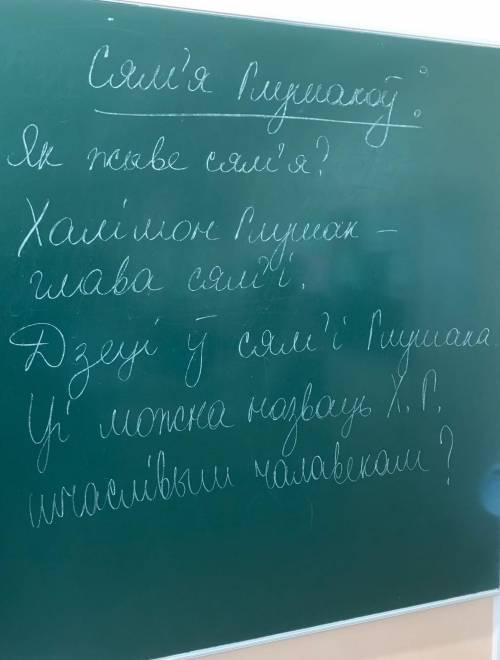 Сям'я Глушакоў:
Як жыве сям'я?
Халімон Глушак –
глава сям'і.
Дзеці ў сям'і Глушака.
Ці можна назваць Х. Г.
шчаслівым чалавекам?